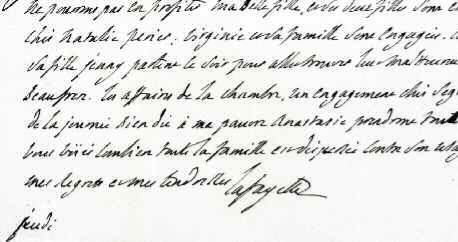 ne pouvons pas en profiter. ma belle fille et ses deux filles sont
chés Natalie perier; virginie et sa famille sont engagés.
sa fille jenny partent le soir pour aller trouver leur
beaufrere. les affaires de la chambre, un engagement chés
de la journée bien dû à ma pauvre Anastasie
vous voiés combien toute la famille est dispersée contre son
mes regrets et mes tendresses lafayette
jeudi